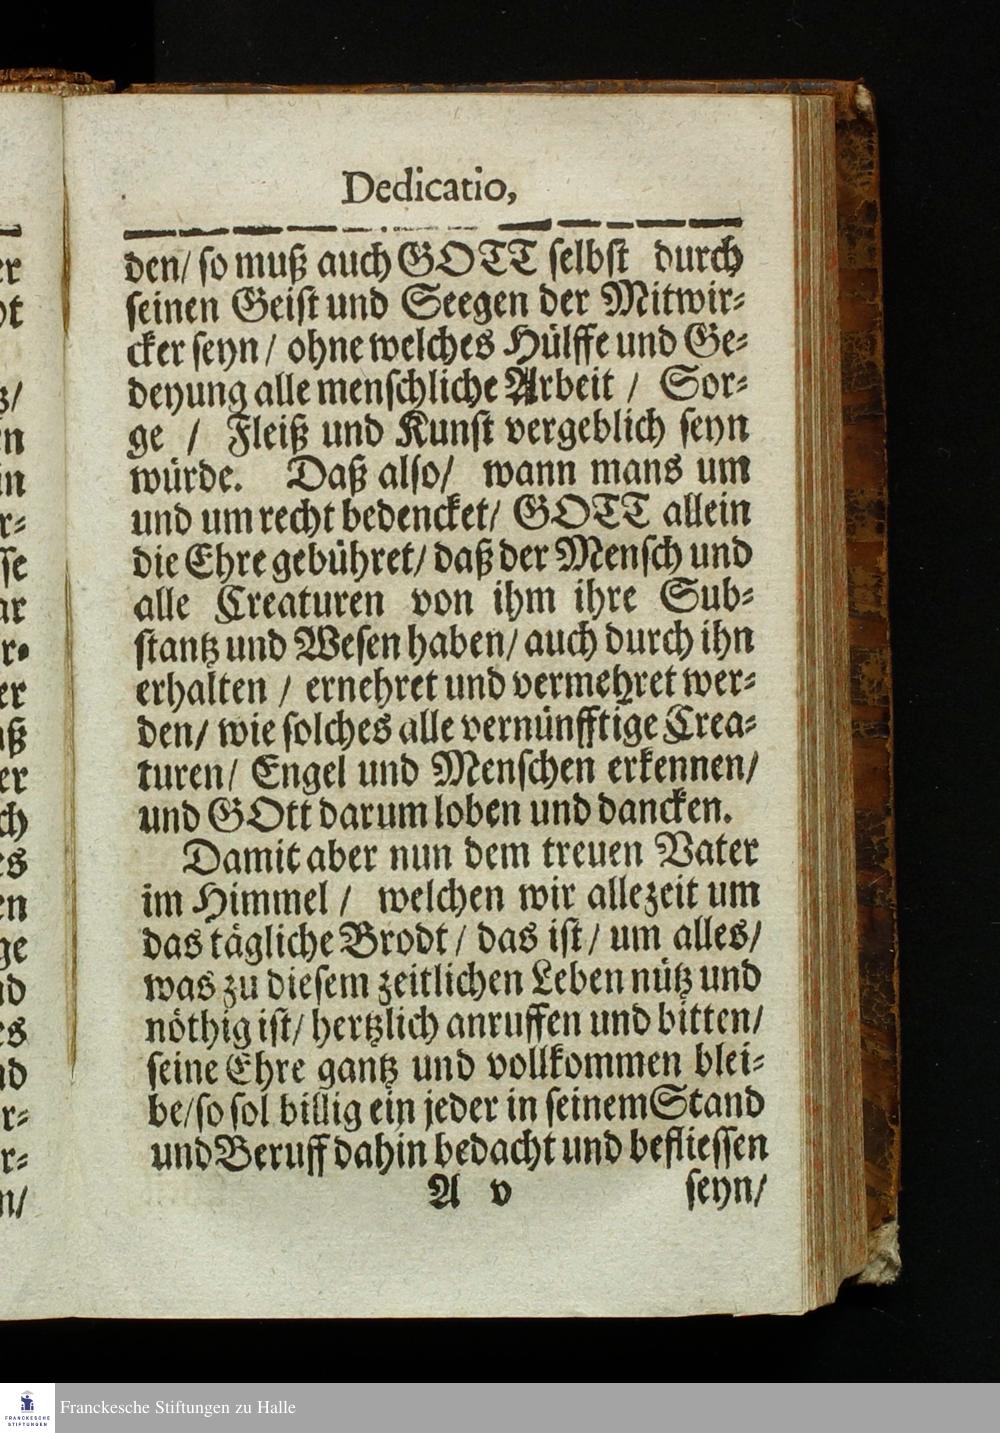 Dedicatio,
den/ so muß auch GOTT selbst durch
seinen Geist und Seegen der Mitwir-
cker seyn / ohne welches Hülffe und Ge-
deyung alle menschliche Arbeit / Sor-
ge / Fleiß und Kunst vergeblich seyn
würde. Daß also/ wann mans um
und um recht bedencket/ GOTT allein
die Ehre gebühret/ daß der Mensch und
alle Creaturen von ihm ihre Sub-
stantz und Wesen haben/ auch durch ihn
erhalten / ernehret und vermehret wer-
den/ wie solches alle vernünfftige Crea-
turen/ Engel und Menschen erkennen/
und GOtt darum loben und dancken.
Damit aber nun dem treuen Vater
im Himmel / welchen wir allezeit um
das tägliche Brodt / das ist / um alles/
was zu diesem zeitlichen Leben nütz und
nöthig ist/ hertzlich anruffen und bitten/
seine Ehre gantz und vollkommen blei-
be/ so sol billig ein jeder in seinem Stand
und Beruff dahin bedacht und befliessen
A v seyn/
FRANCKESCHE
STIFTUNGEN
Franckesche Stiftungen zu Halle